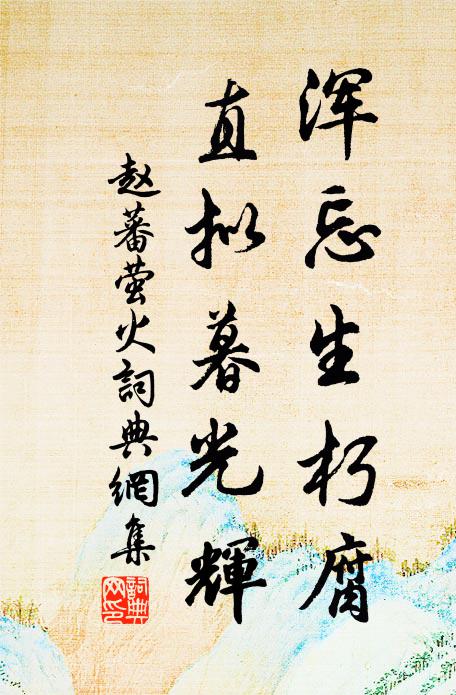 浑忘生朽腐
直拟暮光輝
赵蕃萤火詞典網集
詞典網印